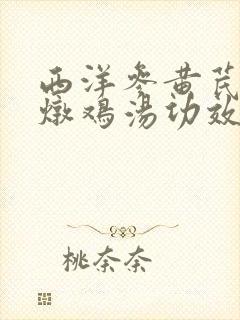 西洋参黄芪
燉鸡汤功效
桃奈奈